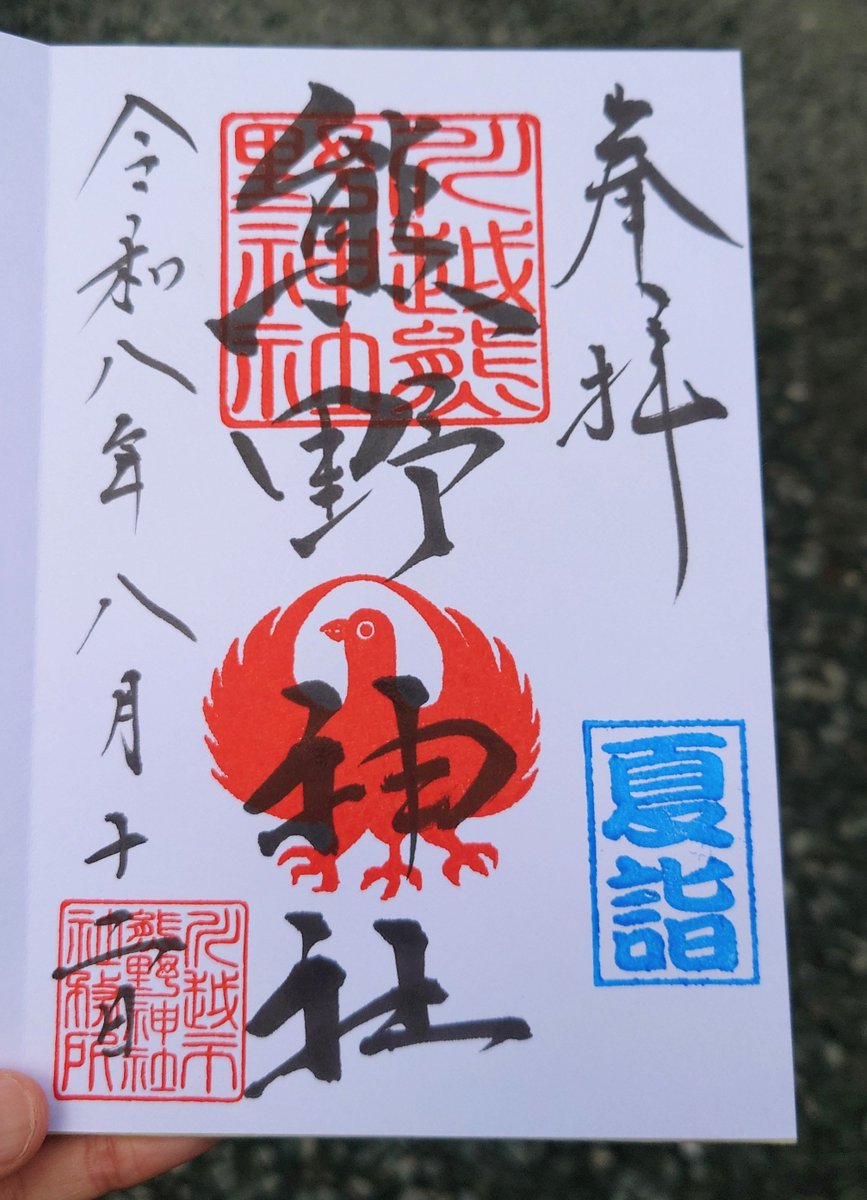 奉拝
夏詣
川越熊
野神社
熊野神社
令和八年八月十日
川越市
熊野神社
社務所